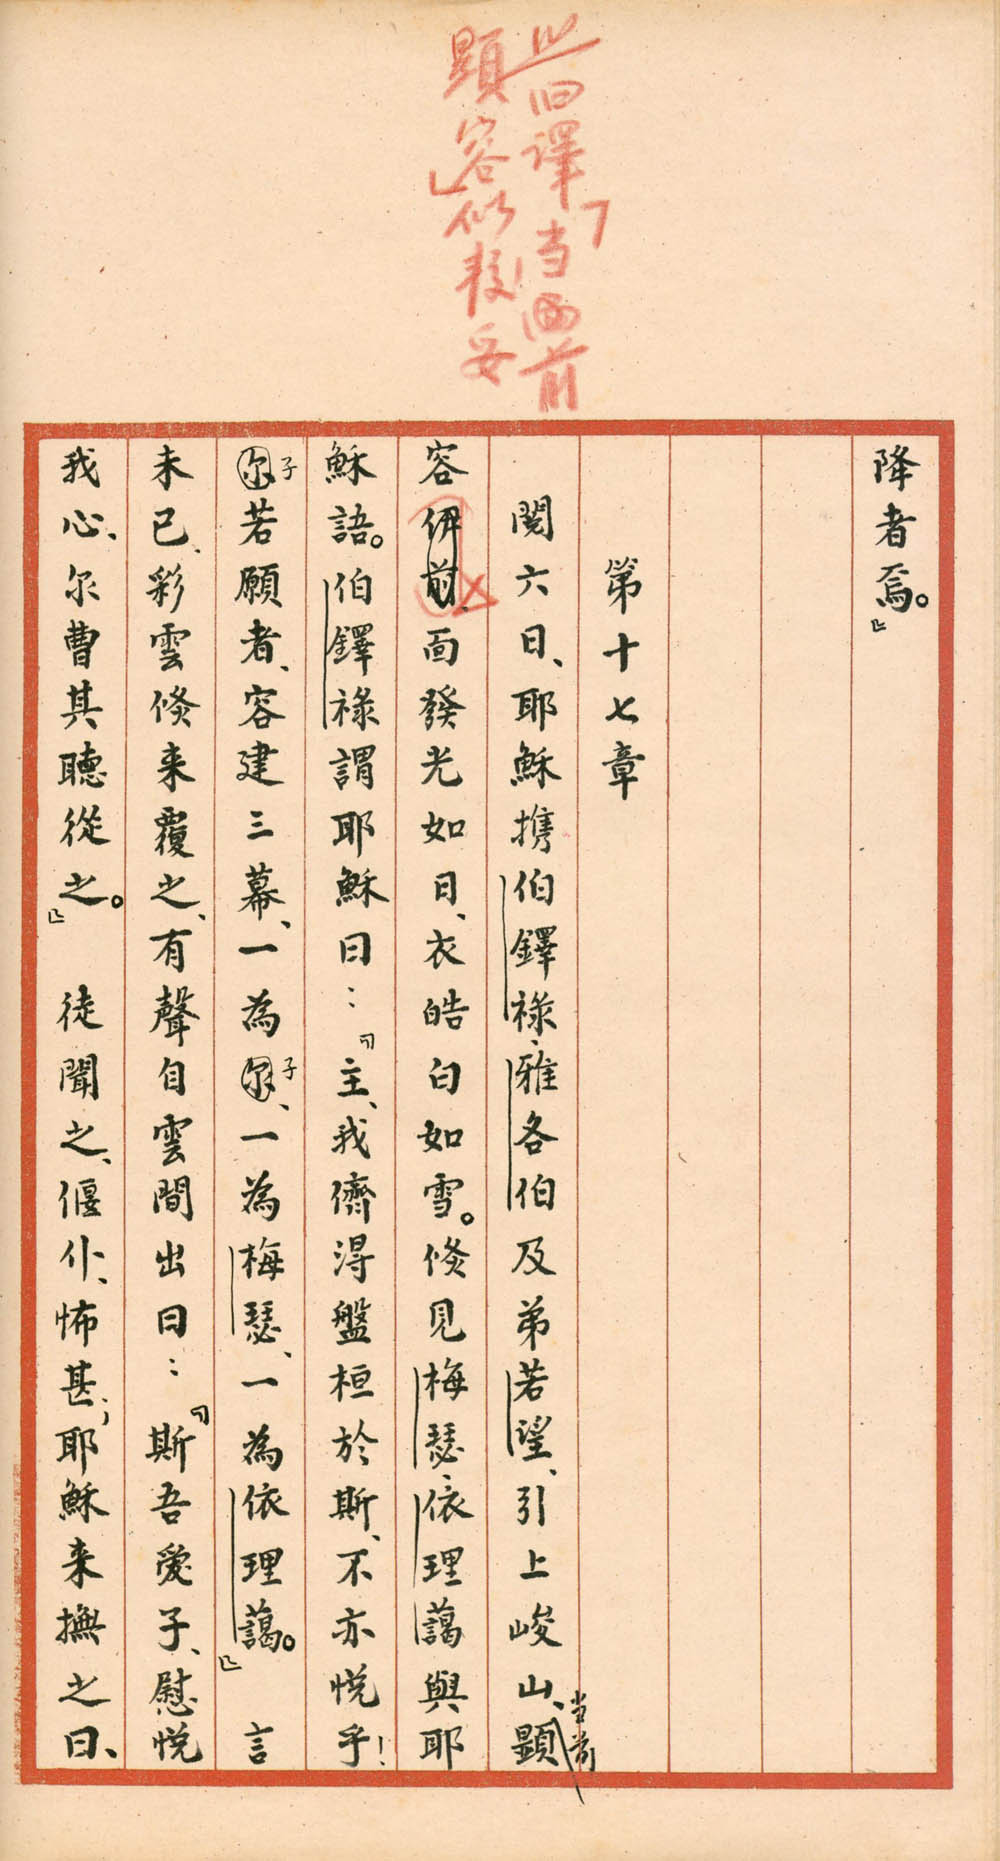 此旧譯「当面前
顯容」似較妥
降者焉。」
第十七章
閱六日、耶穌携伯鐸祿、雅各伯及弟若望、引上峻山、當前顯
容伊前、面發光如日、衣皓白如雪。倏見梅瑟、依理藹與耶
穌語。伯鐸祿謂耶穌曰：「主、我儕得盤桓於斯、不亦悅乎！
尔子若願者、容建三幕、一為尔子、一為梅瑟、一為依理藹。」言
未已、彩雲倏来覆之、有聲自雲間出曰：「斯吾愛子、慰悅
我心、尔曹其聽從之。」徒聞之、偃仆、怖甚；耶穌来撫之曰、